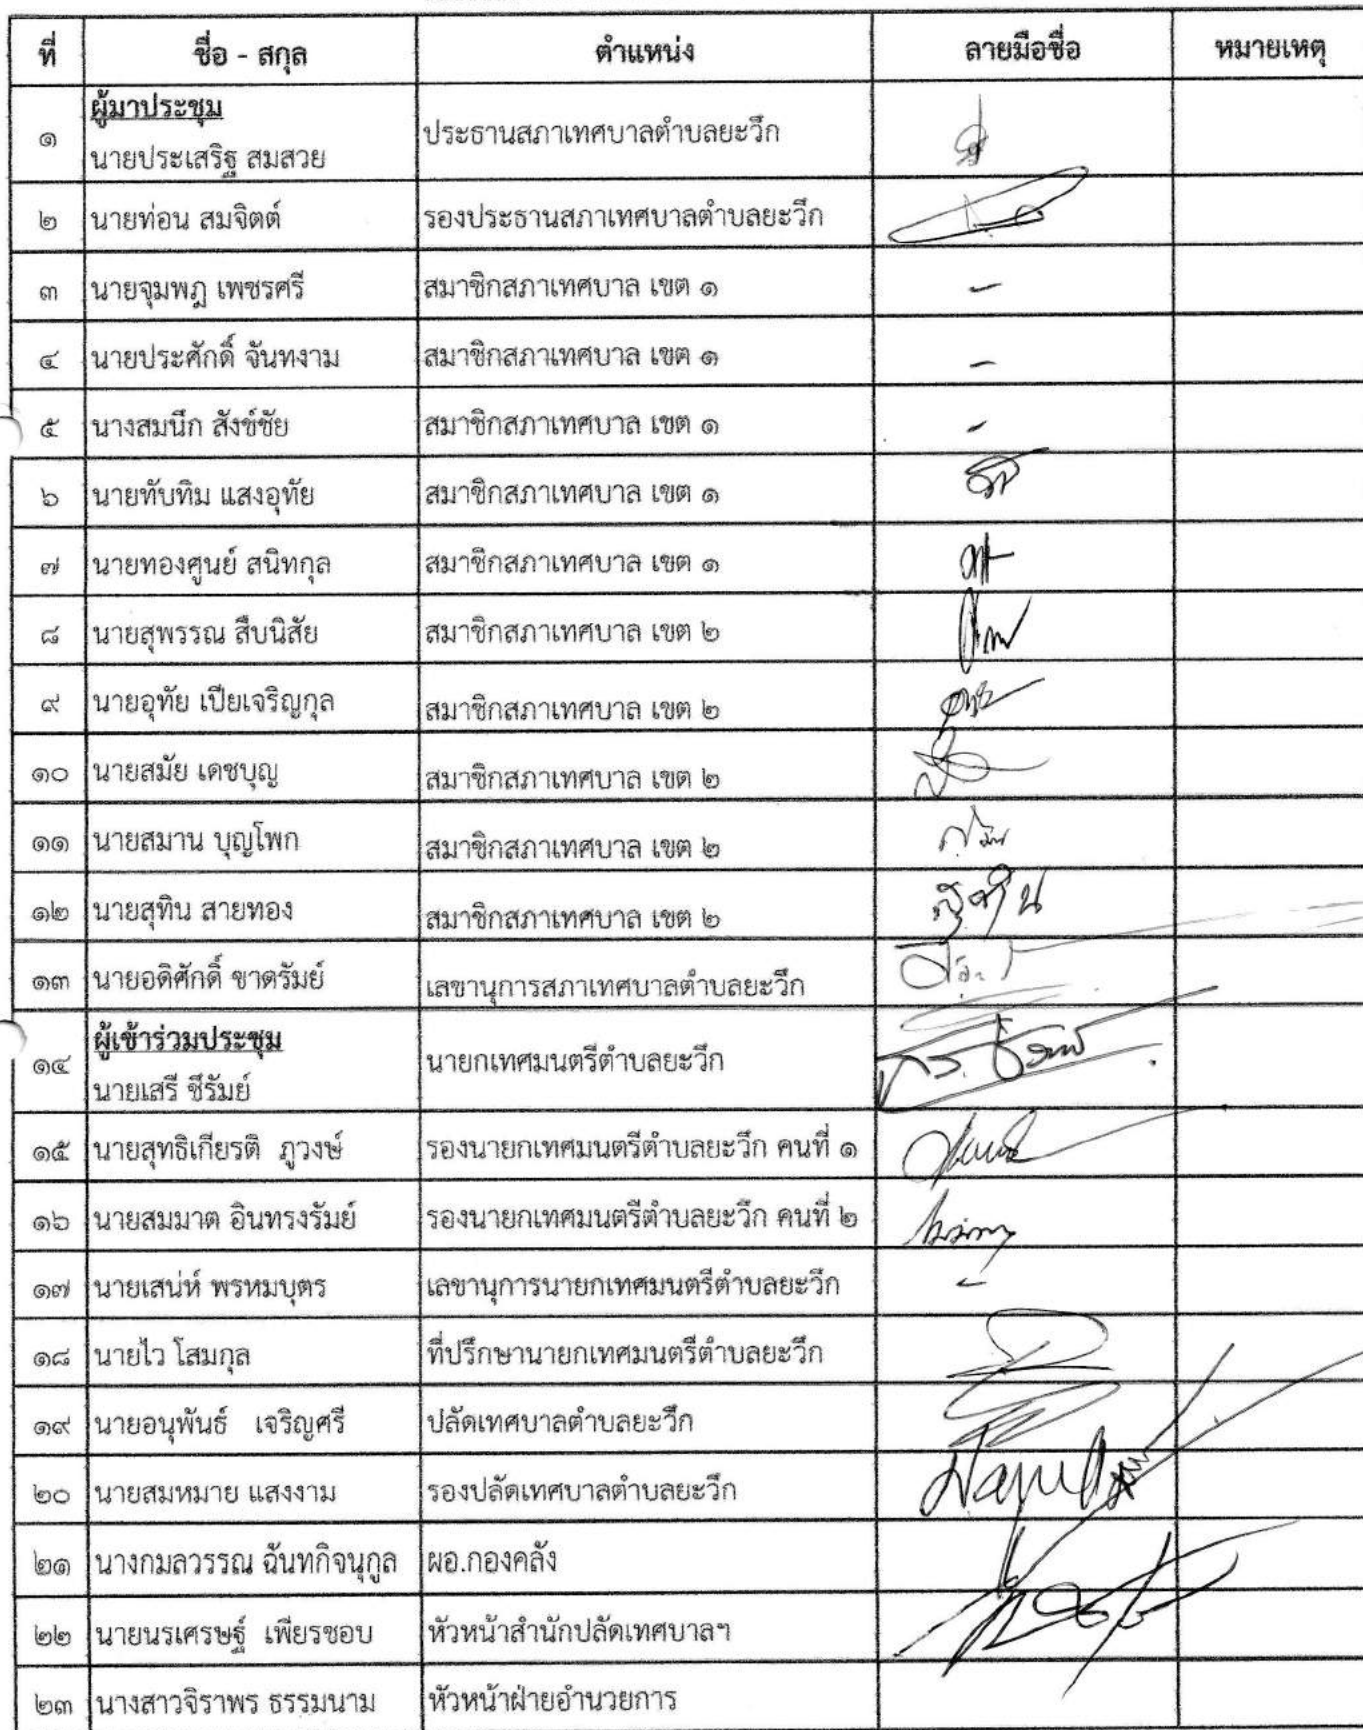 ที่ ชื่อ - สกุล ตำแหน่ง ลายมือชื่อ หมายเหตุ
ผู้มาประชุม
๑ นายประเสริฐ สมสวย ประธานสภาเทศบาลตำบลยะวึก
๒ นายท่อน สมจิตต์ รองประธานสภาเทศบาลตำบลยะวึก
๓ นายจุมพฎ เพชรศรี สมาชิกสภาเทศบาล เขต ๑ -
๔ นายประศักดิ์ จันทงาม สมาชิกสภาเทศบาล เขต ๑ -
๕ นางสมนึก สังข์ชัย สมาชิกสภาเทศบาล เขต ๑ -
๖ นายทับทิม แสงอุทัย สมาชิกสภาเทศบาล เขต ๑
๗ นายทองศูนย์ สนิทกุล สมาชิกสภาเทศบาล เขต ๑
๘ นายสุพรรณ สืบนิสัย สมาชิกสภาเทศบาล เขต ๒
๙ นายอุทัย เปียเจริญกุล สมาชิกสภาเทศบาล เขต ๒
๑๐ นายสมัย เดชบุญ สมาชิกสภาเทศบาล เขต ๒
๑๑ นายสมาน บุญโพก สมาชิกสภาเทศบาล เขต ๒
๑๒ นายสุทิน สายทอง สมาชิกสภาเทศบาล เขต ๒ สุทิน
๑๓ นายอดิศักดิ์ ขาดรัมย์ เลขานุการสภาเทศบาลตำบลยะวึก
ผู้เข้าร่วมประชุม
๑๔ นายเสรี ชีรัมย์ นายกเทศมนตรีตำบลยะวึก
๑๕ นายสุทธิเกียรติ ภูวงษ์ รองนายกเทศมนตรีตำบลยะวึก คนที่ ๑
๑๖ นายสมมาต อินทรงรัมย์ รองนายกเทศมนตรีตำบลยะวึก คนที่ ๒
๑๗ นายเสน่ห์ พรหมบุตร เลขานุการนายกเทศมนตรีตำบลยะวึก -
๑๘ นายไว โสมกุล ที่ปรึกษานายกเทศมนตรีตำบลยะวึก
๑๙ นายอนุพันธ์ เจริญศรี ปลัดเทศบาลตำบลยะวึก
๒๐ นายสมหมาย แสงงาม รองปลัดเทศบาลตำบลยะวึก
๒๑ นางกมลวรรณ ฉันทกิจนุกูล ผอ.กองคลัง
๒๒ นายนรเศรษฐ์ เพียรชอบ หัวหน้าสำนักปลัดเทศบาลฯ
๒๓ นางสาวจิราพร ธรรมนาม หัวหน้าฝ่ายอำนวยการ